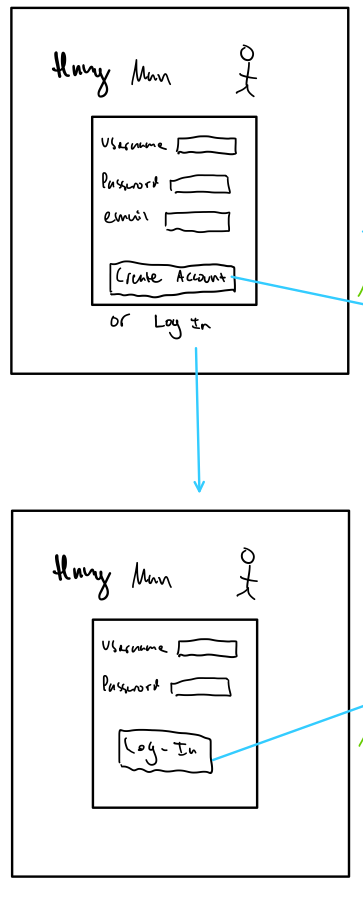 Hung Man
Username
Password
email
Create Account
or Log In
Hung Man
Username
Password
Log-In